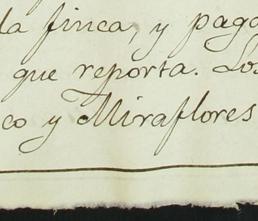 la finca, y paga
que reporta. Los
co y Miraflores